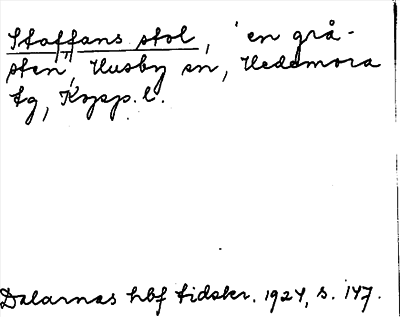 Staffans stol, 'en grå-
sten", Husby sn, Hedemora
tg, Kopp. l.
Dalarnas hbf tidskr. 1924, s. 147.